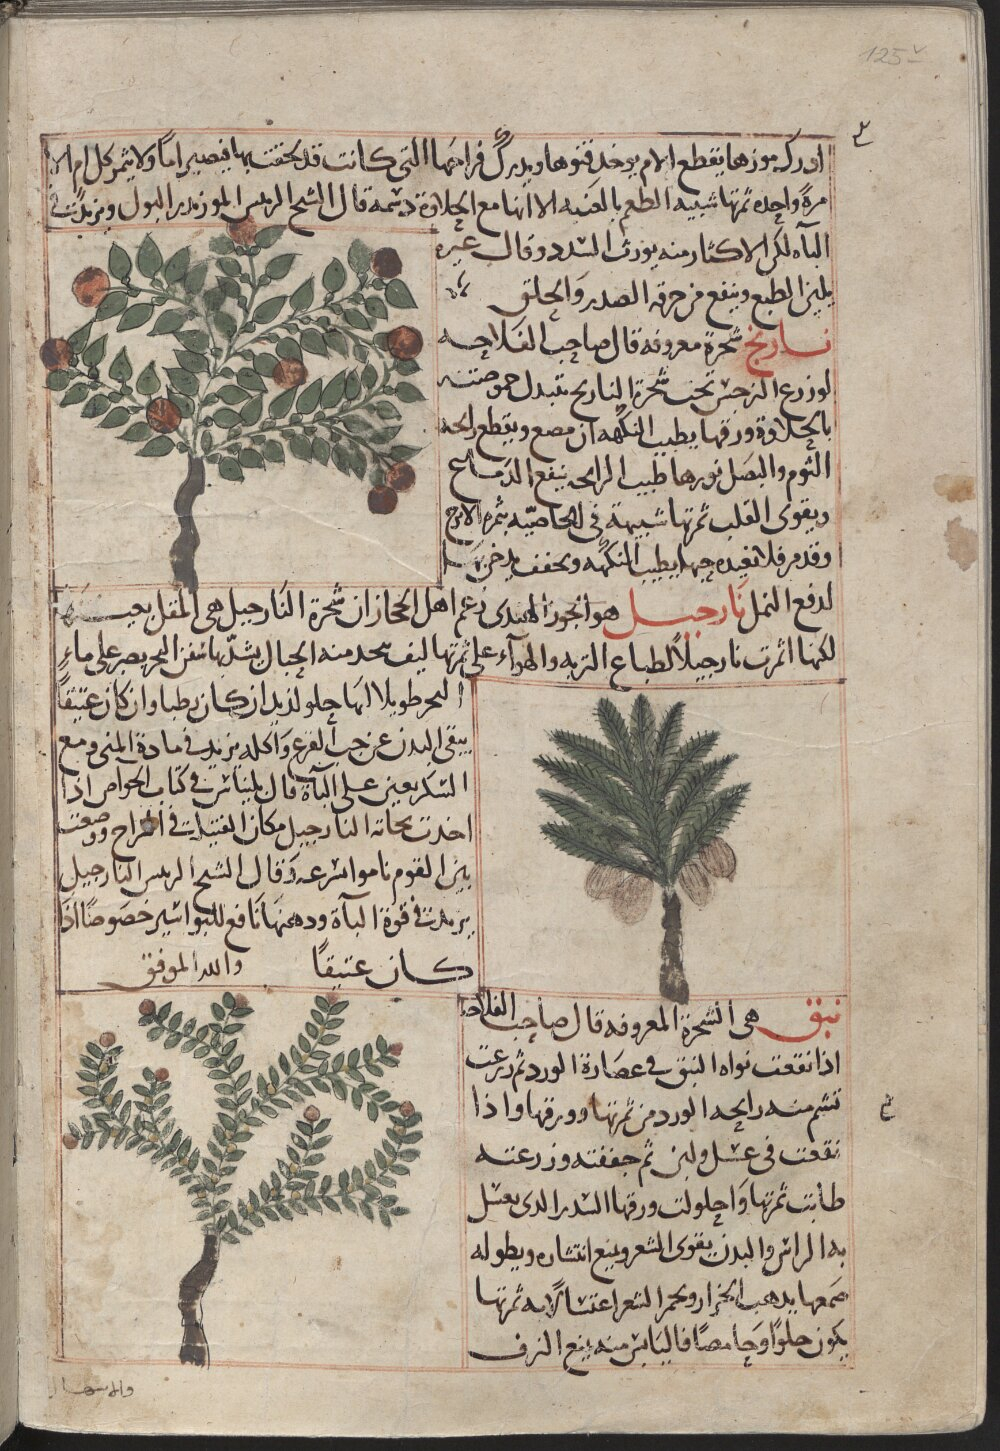 125v
ادرك موزها يقطع الام يوخذ قنوها ويدرك فراخها التى كانت قد لحقت بها فيصير اما ولا يثمر كل ام الا
مرة واحدة ثمرتها شبيه الطعم بالعنبه الا انها مع الحلاوة دسمة قال الشيخ الريس الموز يدر البول ويزيد فى
الباه لكن الاكثار منه يورث السدد وقال غيره
يلين الطبع وينفع من حرقه الصدر والحلق
نارنج شجرة معروفه قال صاحب الفلاحه
لو زرع النرجس تحت شجرة النارنج تتبدل حموضته
بالحلاوة ورقها يطيب النكهه ان مضغ ويقطع رايحه
الثوم والبصل نورها طيب الرايحه ينفع الدماغ
ويقوى القلب ثمرتها شبيهة فى الخاصيه بثمره الاترج
وقد مر فلا نعيده حبها يطيب النكهه ويجفف يدخن بها
لدفع النمل نارجيل هو الجوز الهندى زعم اهل الحجاز ان شجرة النارجيل هى المقل بعينها
لكنها اثمرت نارجيلا لطباع التربه والهوآء على ثمرتها ليف يتخذ منه الحبال يشد بها سفن البحر يصبر على ماء
البحر طويلا لبها حلو لذيذ ان كان رطبا وان كان عتيقا
ينقى البدن عن حب القرع واكله يزيد فى مادة المنى ومع
السكر يعين على الباه قال بليناس فى كتاب الخواص اذا
اخذت نحاتة النارجيل مكان الفتيلة فى السراج ووضعت
بين القوم ناموا بسرعه وقال الشيخ الريس النارجيل
يزيد فى قوة الباه ودهنها نافع للبواسير خصوصا اذا
كان عتيقا والله الموفق
نبق هى الشجرة المعروفه قال صاحب الفلاحه
اذا نقعت نواه النبق فى عصارة الورد ثم زرعت
تشم منه رايحه الورد من ثمرتها وورقها واذا
نقعت فى عسل ولبن ثم جففته وزرعته
طابت ثمرتها واحلولت ورقها السدر الذى يغسل
به الراس والبدن يقوى الشعر ويمنع انتشاره ويطوله
صمغها يذهب الحزاز ويحمر الشعر اغتسالا به ثمرتها
يكون حلوا وحامضا فاليابس منه يمنع النزف
والاسهال